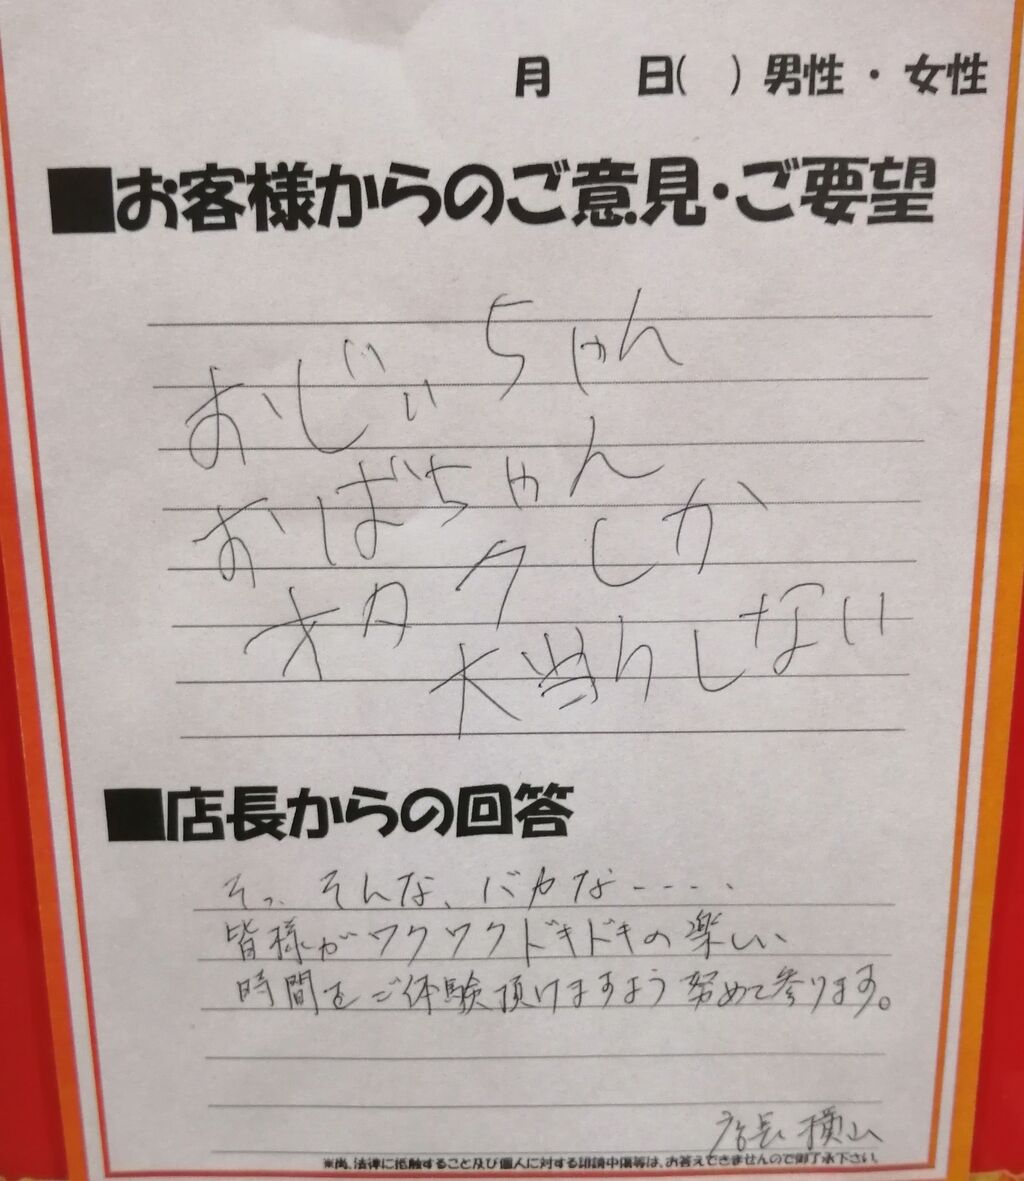 月 日( ) 男性・女性
■お客様からのご意見・ご要望
おじぃちゃん
おばちゃん
オタクしか
大当りしない
■店長からの回答
そっ、そんな、バカな‐‐‐‐.
皆様がワクワクドキドキの楽しい
時間をご体験頂けますよう努めて参ります。
店長 横山
※尚、法律に抵触すること及び個人に対する誹謗中傷等は、お答えできませんので御了承下さい。